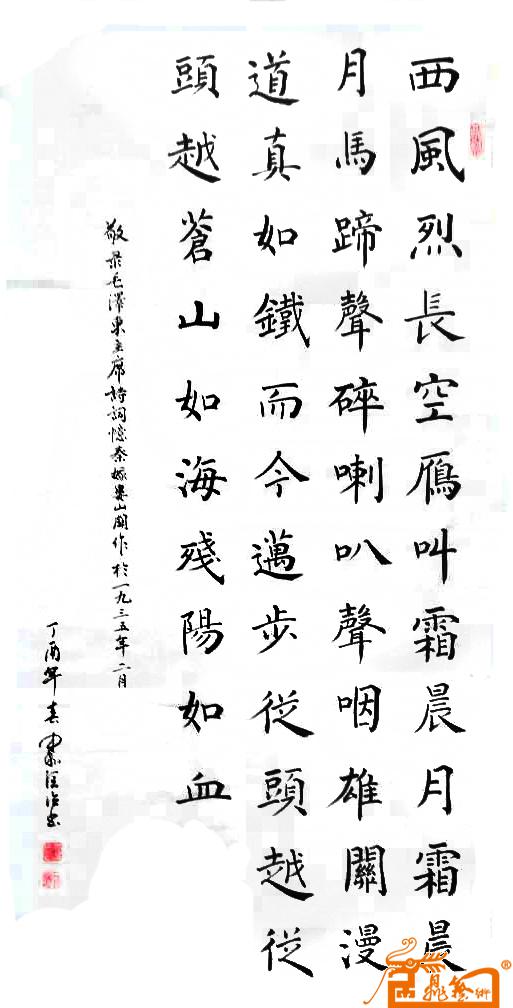 西風烈長空雁叫霜晨月霜晨
月馬蹄聲碎喇叭聲咽雄關漫
道真如鐵而今邁步從頭越從
頭越蒼山如海殘陽如血
敬录毛澤東主席詩詞憶秦娥婁山關作於一九三五年二月
丁酉年春